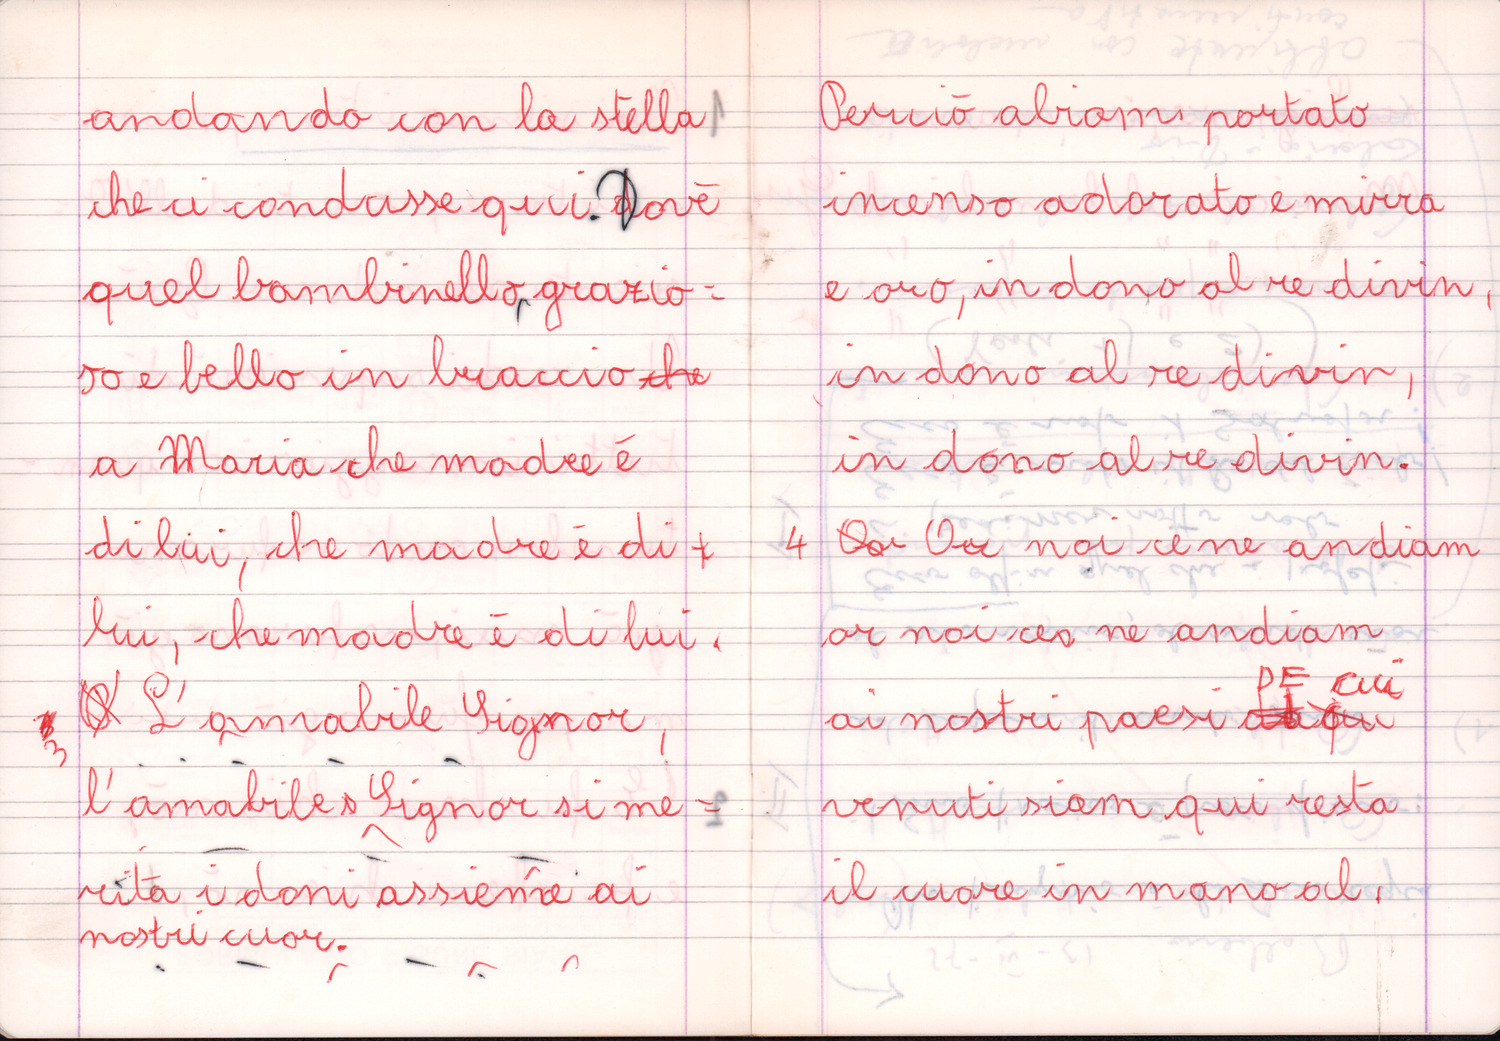 andando con la stella
che ci condusse qui. Dovē
quel bambinello, grazio=
so e bello in braccio che
a Maria che madre ē
di lui, che madre ē di
lui, che madre ē di lui.
3 L'amabile Signor,
l'amabile Signor si me=
rita i doni assieme ai
nostri cuor.
Perciō abiam portato
incenso adorato e mirra
e oro, in dono al re divin,
in dono al re divin,
in dono al re divin.
4 Or Or noi ce ne andiam
or noi ce ne andiam
DE cui
ai nostri paesi da qui
venuti siam qui resta
il cuore in mano al.